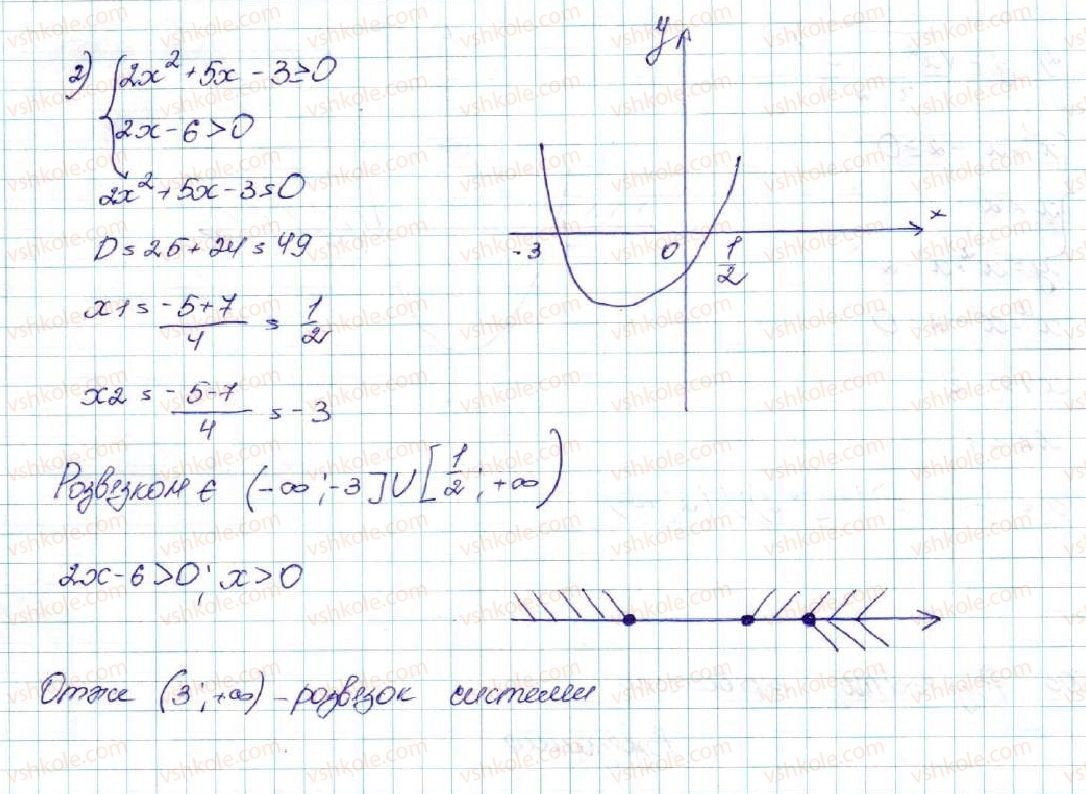 2) { 2x² + 5x - 3 ≥ 0
2x - 6 > 0
2x² + 5x - 3 = 0
D = 25 + 24 = 49
x1 = (-5+7)/4 = 1/2
x2 = (-5-7)/4 = -3
Розвезком є (-∞; -3] U [1/2; +∞)
2x - 6 > 0; x > 0
Отже (3; +∞) - розвезок системи
y
x
-3
0
1/2
vshkole.com